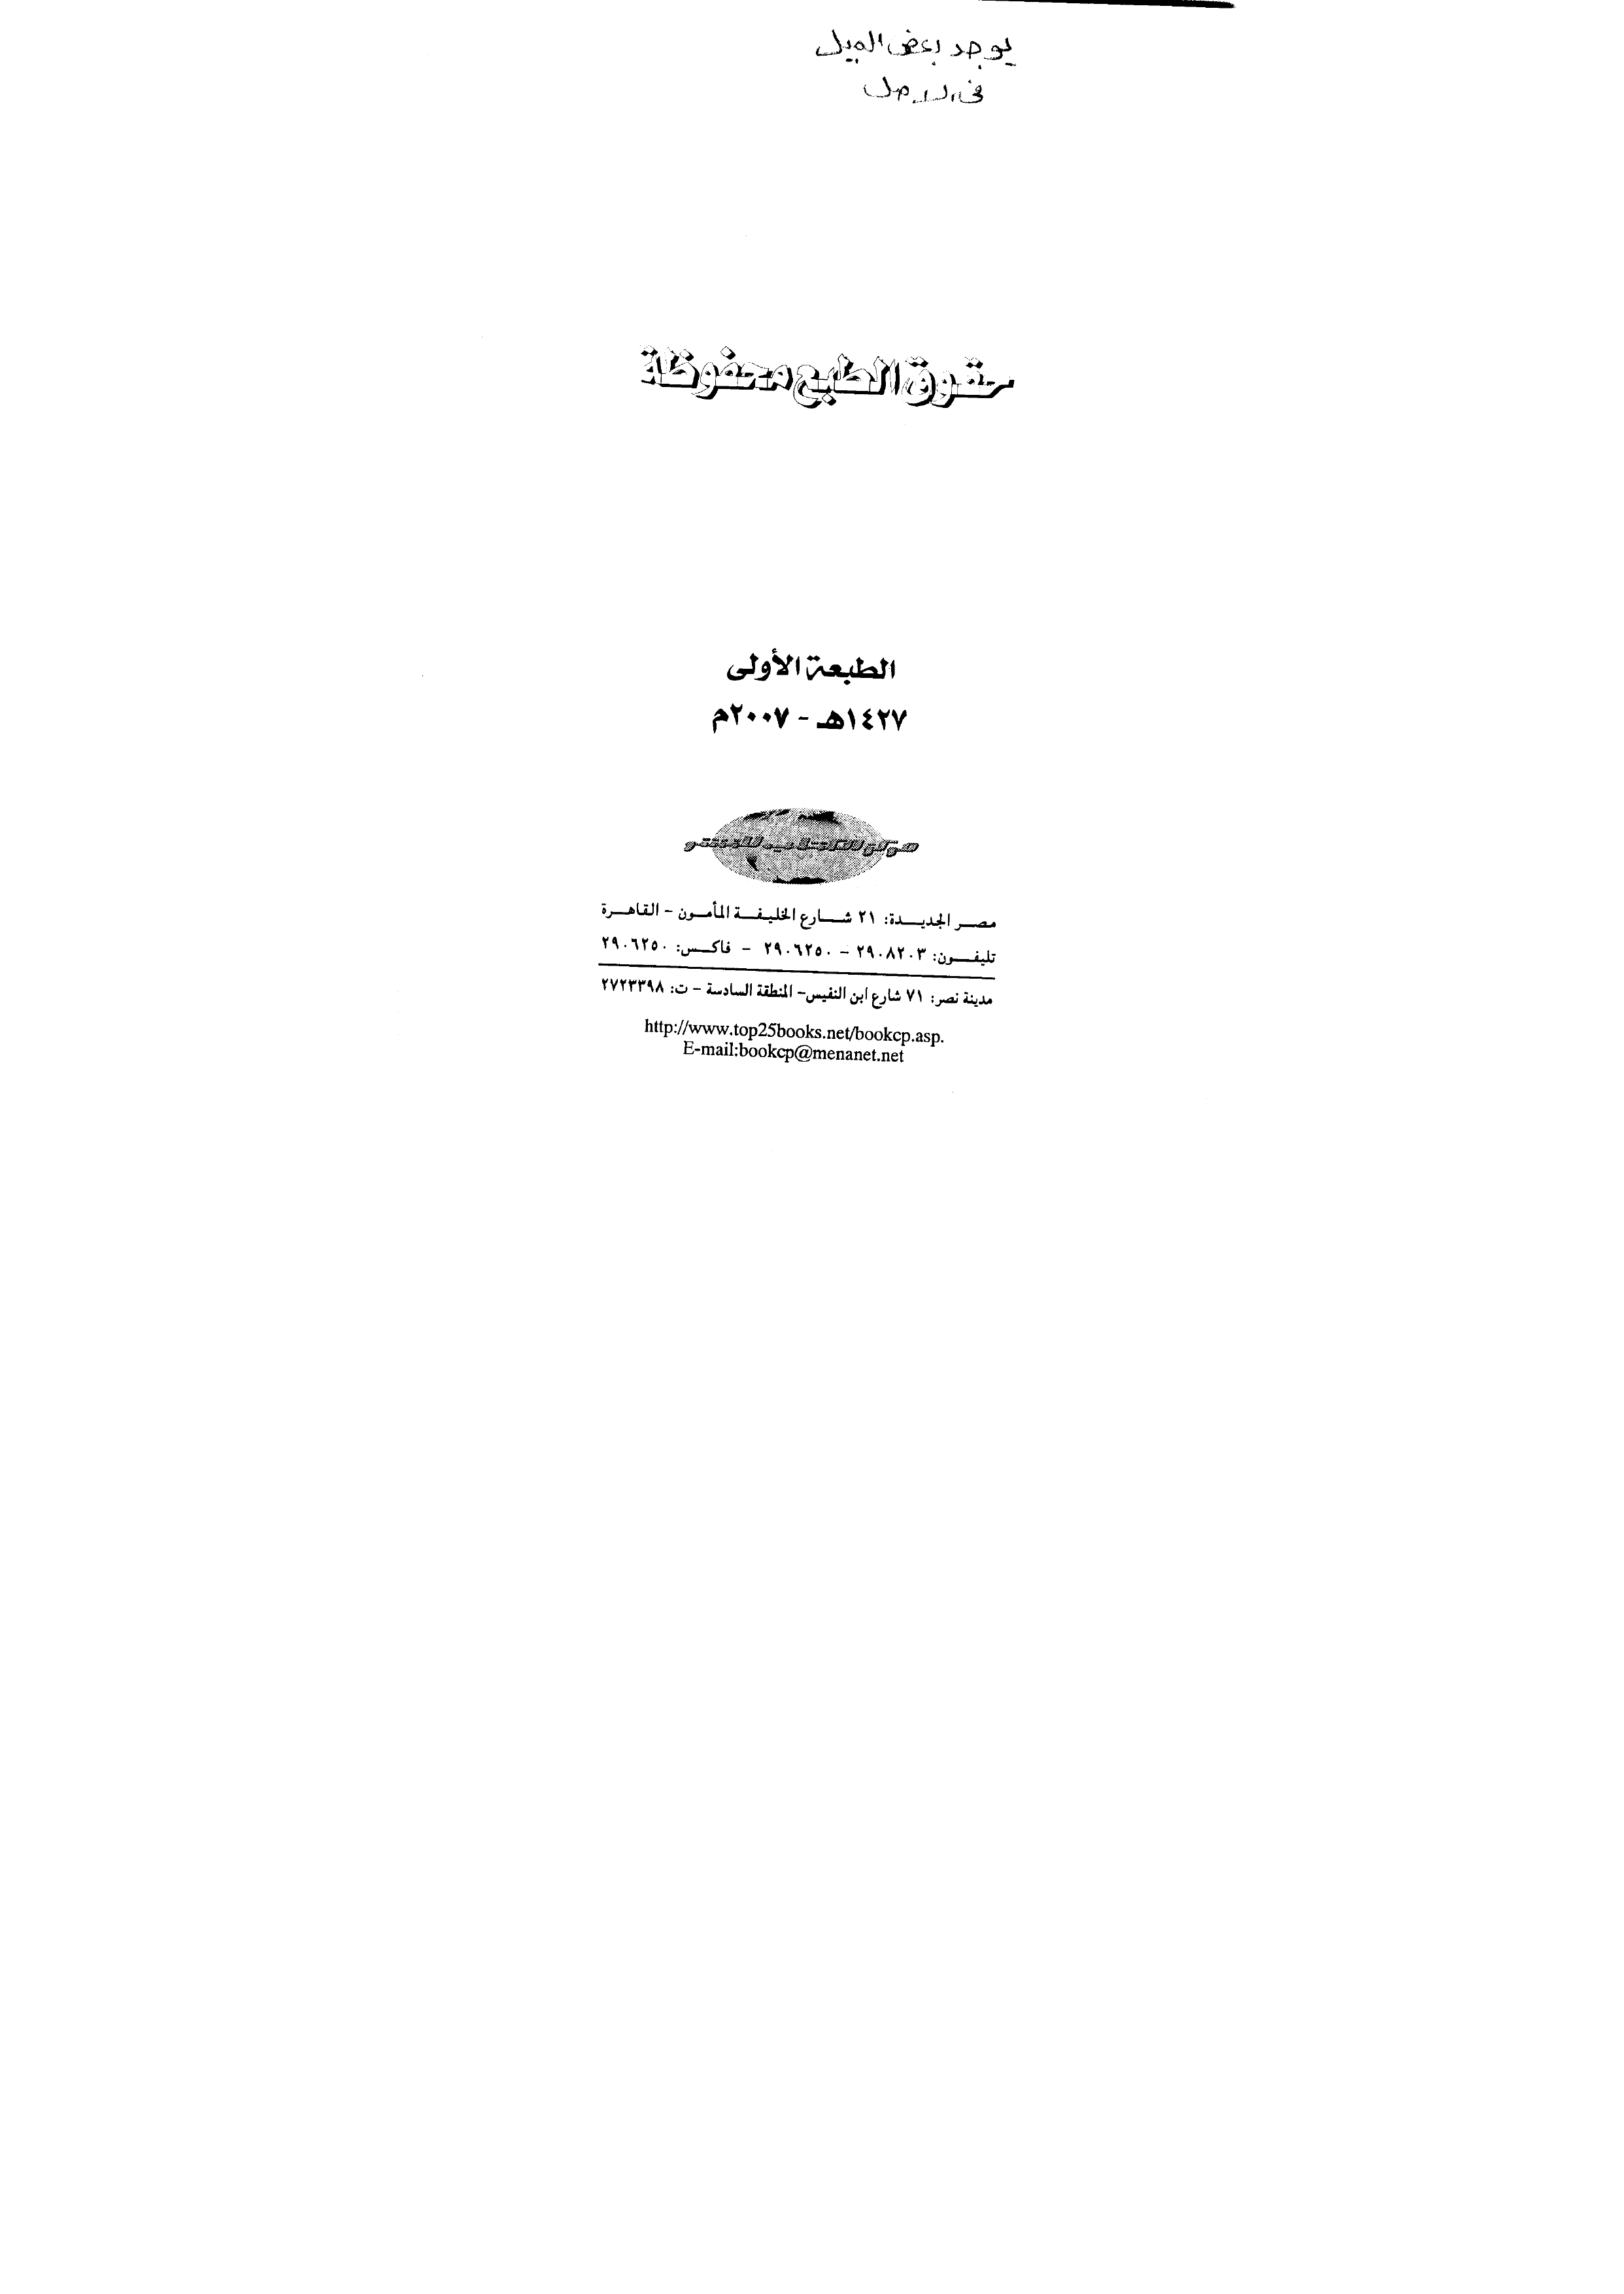 يوجد بعض الميل
فى الاصل
حقوق الطبع محفوظة
الطبعة الأولى
١٤٢٧هـ - ٢٠٠٧م
مصر الجديدة: ٢١ شارع الخليفة المأمون - القاهرة
تليفون: ٢٩٠٨٢٠٣ - ٢٩٠٦٢٥٠ - فاكس: ٢٩٠٦٢٥٠
مدينة نصر: ٧١ شارع ابن النفيس- المنطقة السادسة - ت: ٢٧٢٣٣٩٨
http://www.top25books.net/bookcp.asp.
E-mail:bookcp@menanet.net